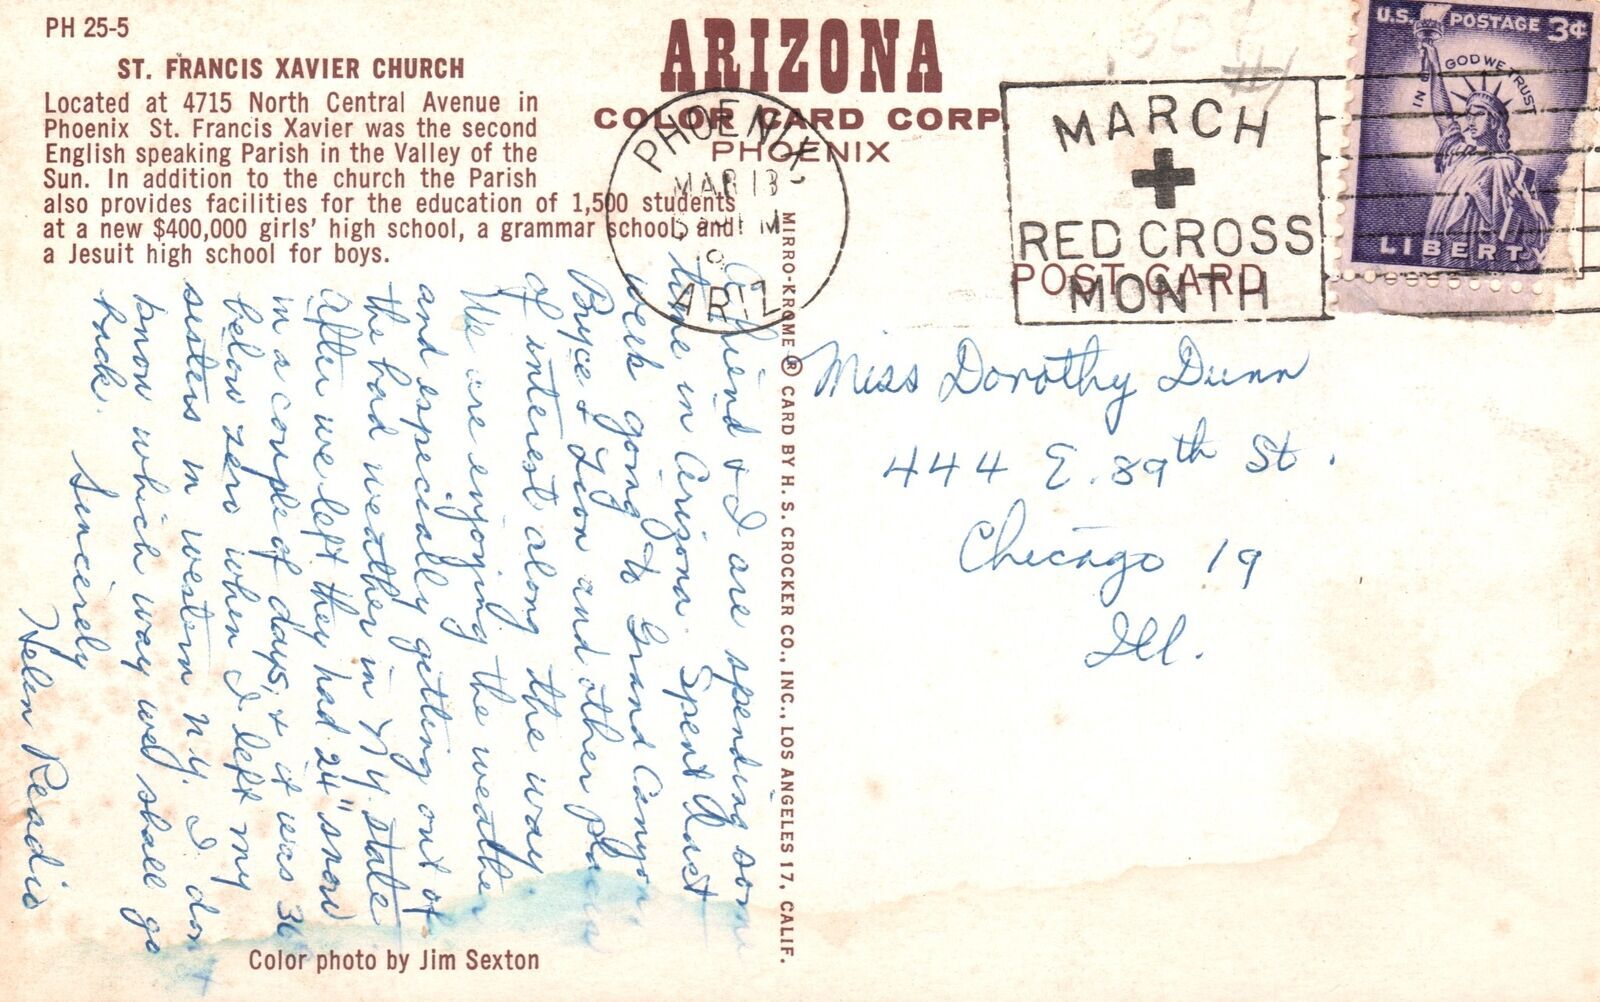 PH 25-5
ST. FRANCIS XAVIER CHURCH
Located at 4715 North Central Avenue in
Phoenix St. Francis Xavier was the second
English speaking Parish in the Valley of the
Sun. In addition to the church the Parish
also provides facilities for the education of 1,500 students
at a new $400,000 girls' high school, a grammar school, and
a Jesuit high school for boys.
ARIZONA
COLOR CARD CORP.
PHOENIX
POST CARD
PHOENIX,
MAR 13
PM
ARIZ
MARCH
RED CROSS
MONTH
U.S. POSTAGE 3¢
IN GOD WE TRUST
LIBERTY
#1
A friend & I are spending some
time in Arizona. Spent last
week going to Grand Canyon
Bryce & Zion and other places
of interest along the way.
We are enjoying the weather
and especially getting out of
the bad weather in N.Y. state
After we left they had 24" snow
in a couple of days, & it was 30
below zero when I left my
sisters in western N.Y. I don't
know which way we shall go
back.
Sincerely
Helen Readio
MIRRO-KROME ® CARD BY H. S. CROCKER CO., INC., LOS ANGELES 17, CALIF.
Miss Dorothy Dunn
444 E. 89th St.
Chicago 19
Ill.
Color photo by Jim Sexton